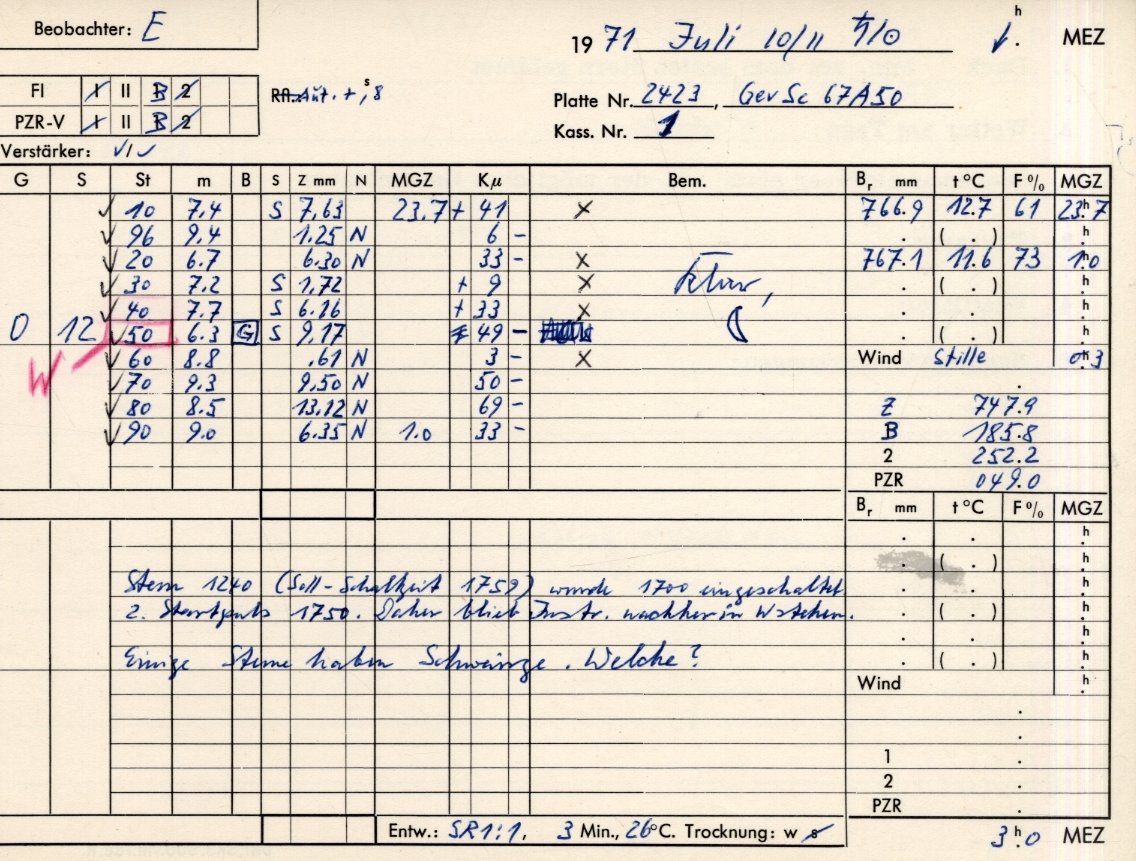 Beobachter: E
19 71 Juli 10/11 ♄/☉ h . MEZ
FI I II B 2
PZR-V I II B 2
Aut. +,8 s
Platte Nr. 2423, Gev Sc 67A50
Kass. Nr. 1
Verstärker: √/√
G S St m B S Z mm N MGZ Kμ Bem. Br mm t °C F % MGZ
10 7.4 S 7,63 23.7 + 41 × 766.9 12.7 61 23h7
96 9.4 1.25 N 6 - . ( . ) h
20 6.7 6.30 N 33 - × 767.1 11.6 73 1h0
30 7.2 S 1,72 + 9 × klar, . ( . ) h
40 7.7 S 6.16 + 33 × . . h
0 12 50 6.3 G S 9.17 49 - ☾ . ( . ) h
W 60 8.8 .61 N 3 - × Wind Stille 0h3
70 9.3 9.50 N 50 - .
80 8.5 13.12 N 69 - Z 747.9
90 9.0 6.35 N 1.0 33 - B 185.8
2 252.2
PZR 049.0
Br mm t °C F % MGZ
. . h
. ( . ) h
Stern 1240 (Soll-Schaltzeit 1759) wurde 1700 eingeschaltet . . h
2. Startpuls 1750. Daher blieb Instr. nachher in W stehen. . ( . ) h
. . h
Einige Sterne haben Schwänze. Welche? . ( . ) h
Wind h
.
.
.
1 .
2 .
PZR .
Entw.: SR1:1, 3 Min., 26°C. Trocknung: w s
3h.0 MEZ